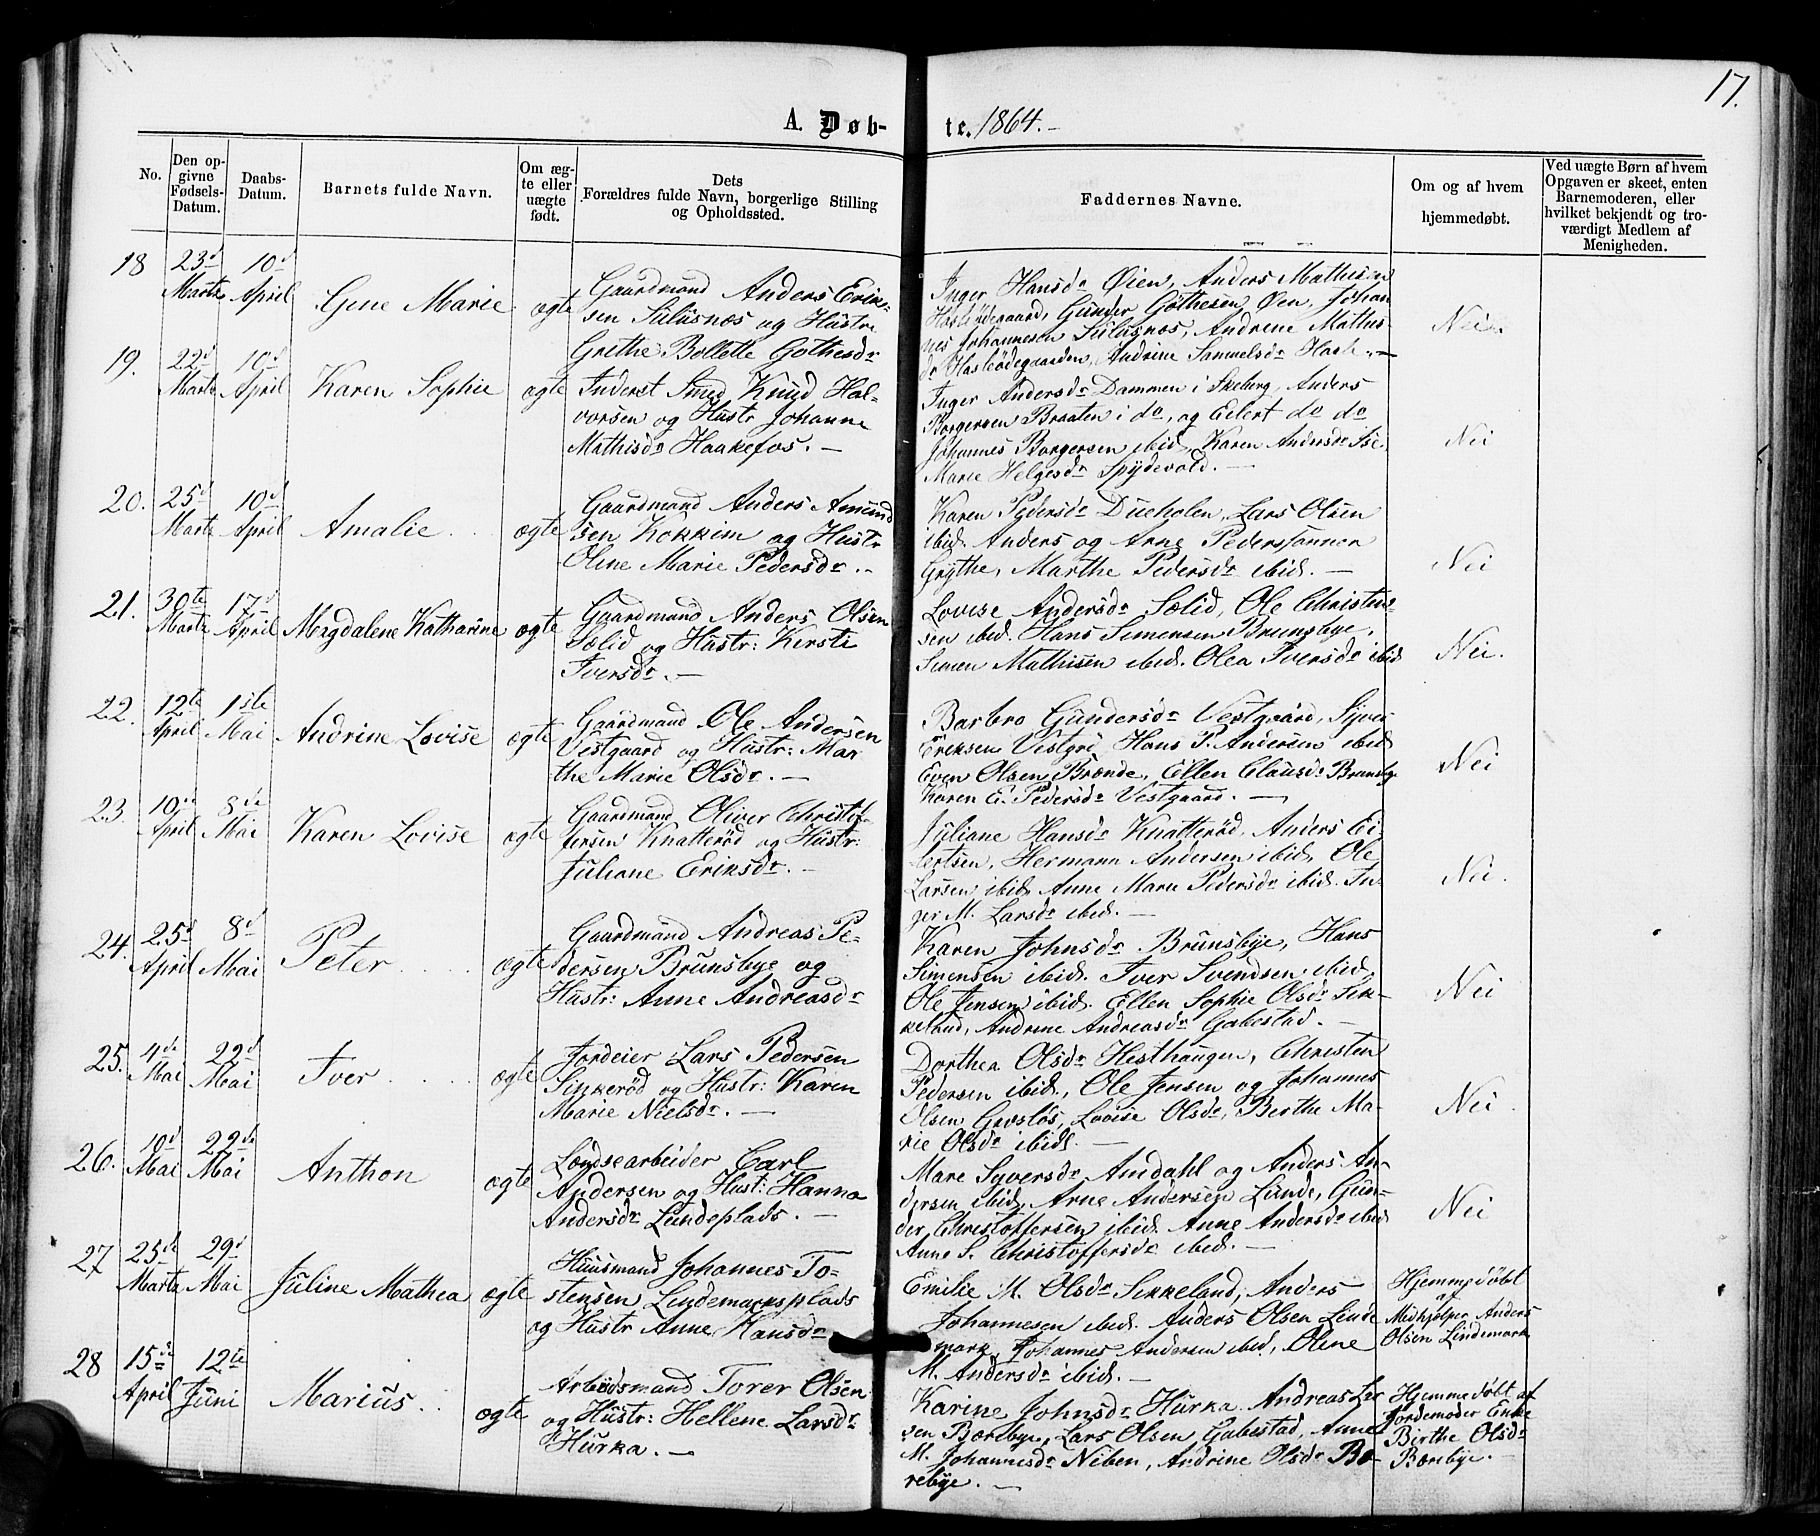 17.
A. Døb-
te. 1864. –
No.
Den op-
givne
Fødsels-
Datum.
Daabs-
Datum.
Barnets fulde Navn.
Om æg-
te eller
uægte
født.
Dets
Forældres fulde Navn, borgerlige Stilling
og Opholdssted.
Faddernes Navne.
Om og af hvem
hjemmedøbt.
Ved uægte Børn af hvem
Opgaven er skeet, enten
Barnemoderen, eller
hvilket bekjendt og tro-
værdigt Medlem af
Menigheden.
18
23d
Marts
10d
April
Gene Marie
ægte
Gaardmand Anders Erik-
sen Sulusnæs og Hustr
Grethe Bollette Gothesdr
Inger Hansdr Øien, Anders Mathisen
Haslødegaard, Gunder Gothesen Øen, Johan
nes Johannesen Sulusnæs, Andrine Mathis
dr Haslødegaarden, Andrine Samuelsdr Hasle. –
Nei.
19.
22d
Marts
10d
April
Karen Sophie
ægte
Inderst Smed Knud Hal-
vorsen og Hustr Johanne
Mathisdr Haakefos. –
Inger Andersdr Dammen i Skeberg, Anders
Borgersen Braaten i do, og Eilert do do
Johannes Borgersen ibid, Karen Andersdr
Marie Helgesdr Spydevold. –
Nei
20.
25d
Marts
10d
April
Amalie
ægte
Gaardmand Anders Amund
sen Kokkim og Hustr
Oline Marie Pedersdr. –
Karen Pedersdr Dueholen, Lars Olsen
ibid. Anders og Arne Pederssønner
Grythe, Marthe Pedersdr ibid. –
Nei
21.
30te
Marts
17d
April
Magdalene Katharine
ægte
Gaardmand Anders Olsen
Sælid og Hustr: Kersti
Iversdr. –
Lovise Andersdr Sælid, Ole Christen-
sen ibid. Hans Simensen Brunsbye,
Simen Mathisen ibid. Olea Iversdr ibid
Nei.
22.
12te
April
1ste
Mai
Andrine Lovise
ægte
Gaardmand Ole Andersen
Vestgaard og Hustr: Mar
the Marie Olsdr. –
Barbro Gundersdr Vestgaard, Syver
Eriksen Vestgrd, Hans P. Andersen ibid
Even Olsen Brænde, Ellen Clausdr Brunsby
Karen E. Pedersdr Vestgaard. –
Nei
23.
10de
April
8de
Mai
Karen Lovise
ægte
Gaardmand Oliver Christof-
fersen Knatterød og Hustr:
Juliane Eriksdr. –
Juliane Hansdr Knatterød, Anders Ei-
lertsen, Hermann Andersen ibid, Ole
Larsen ibid Anne Marie Pedersdr ibid. In-
ger M. Larsdr ibid. –
Nei.
24.
25d
April
8d
Mai
Peter
ægte
Gaardmand Andreas Pe-
dersen Brunsbye og
Hustr: Anne Andreasdr
Karen Johnsdr Brunsbye, Hans
Simensen ibid. Iver Svendsen ibid,
Ole Jensen ibid. Ellen Sophie Olsdr Sik-
keland, Andrine Andreasdr Gabestad. –
Nei
25.
4de
Mai
22d
Mai
Iver
ægte
Jordeier Lars Pedersen
Sinkerød og Hustr: Karen
Marie Nielsdr. –
Dorthea Olsdr Hesthaugen, Christen
Pedersen ibid., Ole Jensen og Johannes
Olsen Grosløs, Lovise Olsdr, Berthe Ma-
rie Olsdr ibid. –
Nei.
26.
10d
Mai
22de
Mai
Anthon
ægte
Lændsearbeider Carl
Andersen og Hust: Hanna
Andersdr Lundeplads. –
Mare Syversdr Amdahl og Anders An-
dersen ibid, Arne Andersen Lunde, Gun-
der Christoffersen ibid. Anne Andersdr ibid
Anne S. Christoffersdr ibid. –
Nei
27
25de
Marts
29d
Mai
Juline Mathea
ægte
Huusmand Johannes To-
stensen Lindemarksplads
og Hustr Anne Hansdr
Emilie M. Olsdr Sikkeland, Anders
Johannesen ibid. Anders Olsen Linde
mark, Johannes Andersen ibid, Olene
M. Andersdr ibid. –
Hjemmedøbt
af
Medhjelper Anders
Olsen Lindemark
28
15de
April
12te
Juni
Marius
ægte
Arbeidsmand Torer Olsen
og Hustr: Hellene Larsdr
Hurka. –
Karine Johnsdr Hurka. Andreas Lar
sen Borebye, Lars Olsen Gabestad, Anne
M. Johannesdr Neben, Andrine Olsdr Bo-
rebye. –
Hjemmedøbt af
Jordemoder Enke
Birthe Olsdr
Borebye. –